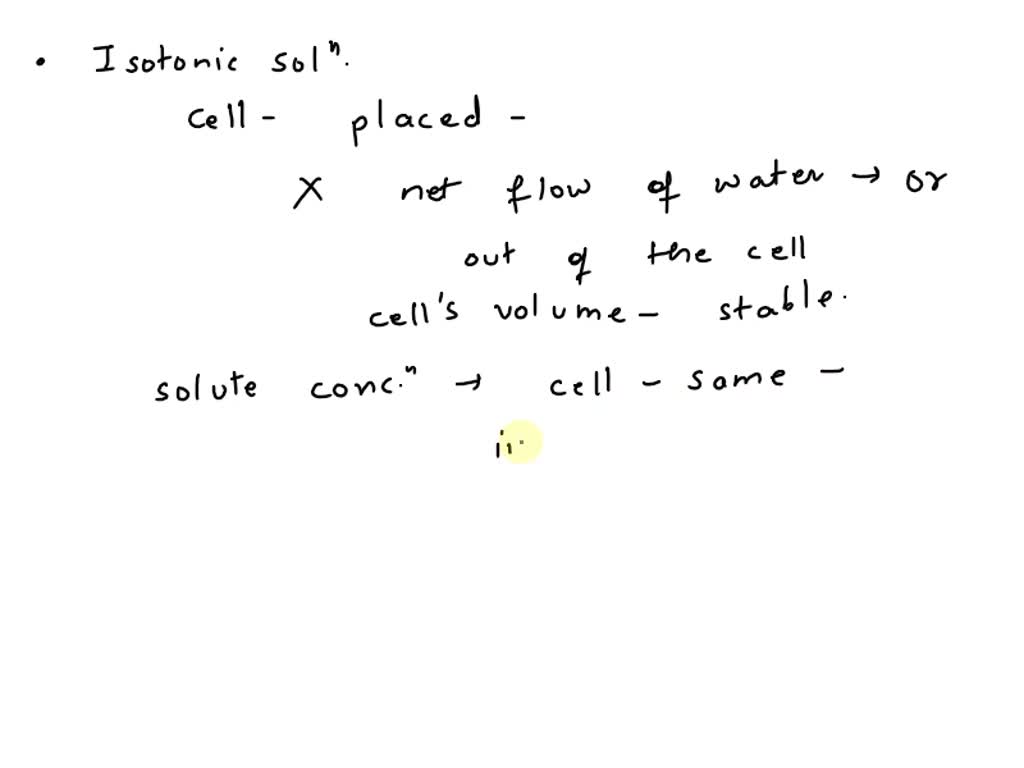 • Isotonic solⁿ.
cell - placed -
X net flow of water → or
out of the cell
cell's volume - stable.
solute conc.ⁿ → cell - same -